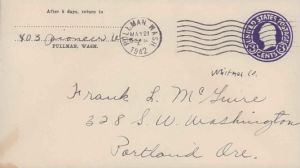 After 5 days, return to
V.O.S. pioneer
PULLMAN, WASH.
PULLMAN WASH
MAY 21
1942
UNITED STATES
CENTS
Whitman Co.
Frank L. McGuire
328 S.W. Washington
Portland Ore.